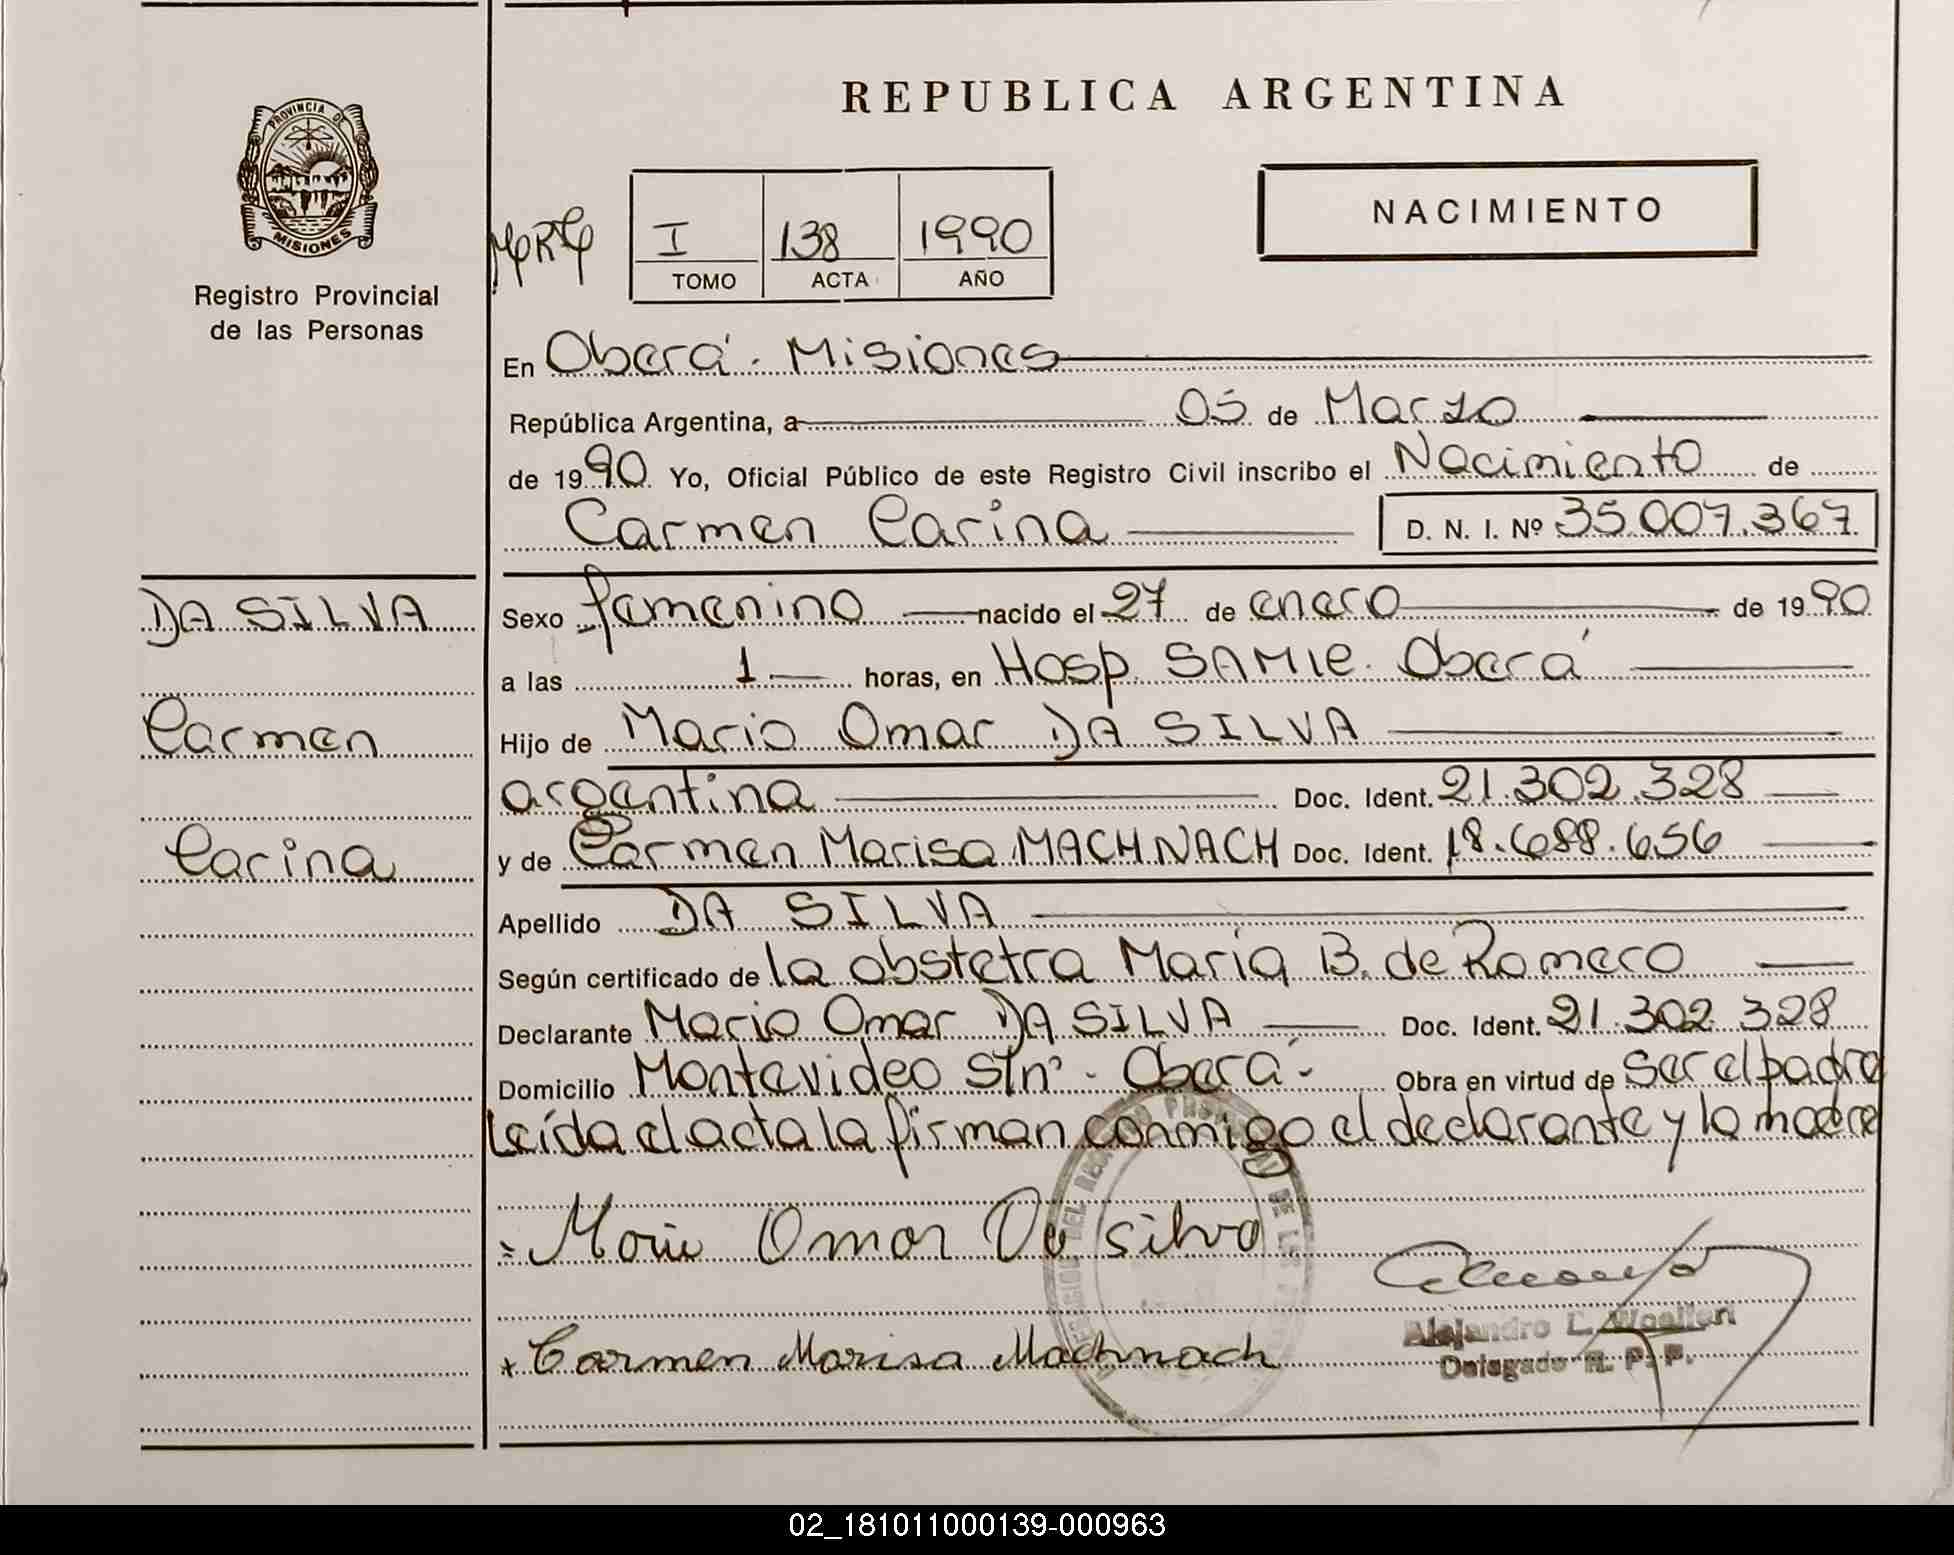 REPUBLICA ARGENTINA
PROVINCIA DE
MISIONES
Registro Provincial
de las Personas
I 138 1990
TOMO ACTA AÑO
NACIMIENTO
En Oberá - Misiones
República Argentina, a 05 de Marzo
de 1990 Yo, Oficial Público de este Registro Civil inscribo el Nacimiento de
Carmen Carina D. N. I. Nº 35.007.367
DA SILVA
Carmen
Carina
Sexo femenino nacido el 27 de enero de 1990
a las 1 horas, en Hosp. SAMIC. Oberá
Hijo de Mario Omar DA SILVA
argentina Doc. Ident. 21.302.328
y de Carmen Marisa MACHNACH Doc. Ident. 18.688.656
Apellido DA SILVA
Según certificado de la obstetra María B. de Romero
Declarante Mario Omar DA SILVA Doc. Ident. 21.302.328
Domicilio Montevideo S/nº - Oberá - Obra en virtud de ser el padre
Leída el acta la firman conmigo el declarante y la madre
Mario Omar Da silva
Carmen Marisa Machnach
Alejandro
Delegado R. P. P.
02_181011000139-000963